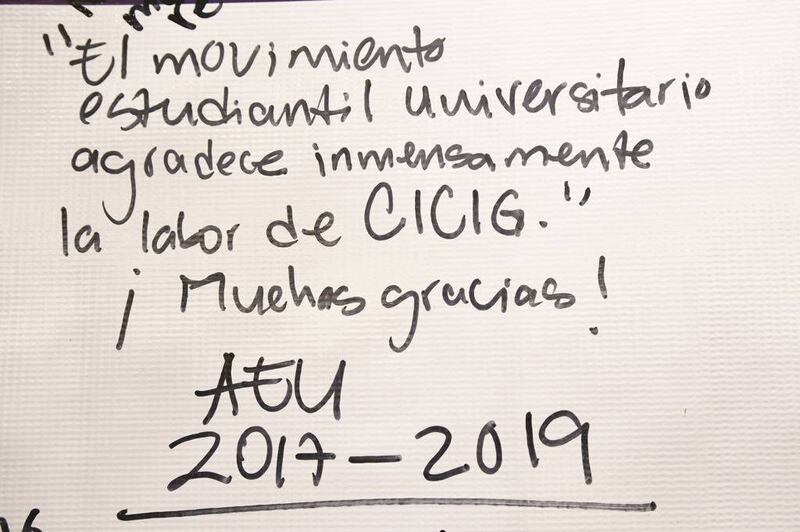 "El movimiento
estudiantil universitario
agradece inmensamente
la labor de CICIG."
¡Muchas gracias!
AEU
2017-2019